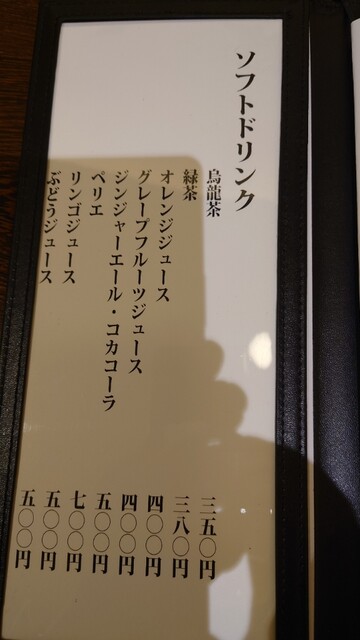 ソフトドリンク
烏龍茶 三五〇円
緑茶 三八〇円
オレンジジュース 四〇〇円
グレープフルーツジュース 四〇〇円
ジンジャーエール・コカコーラ 五〇〇円
ペリエ 七〇〇円
リンゴジュース 五〇〇円
ぶどうジュース 五〇〇円